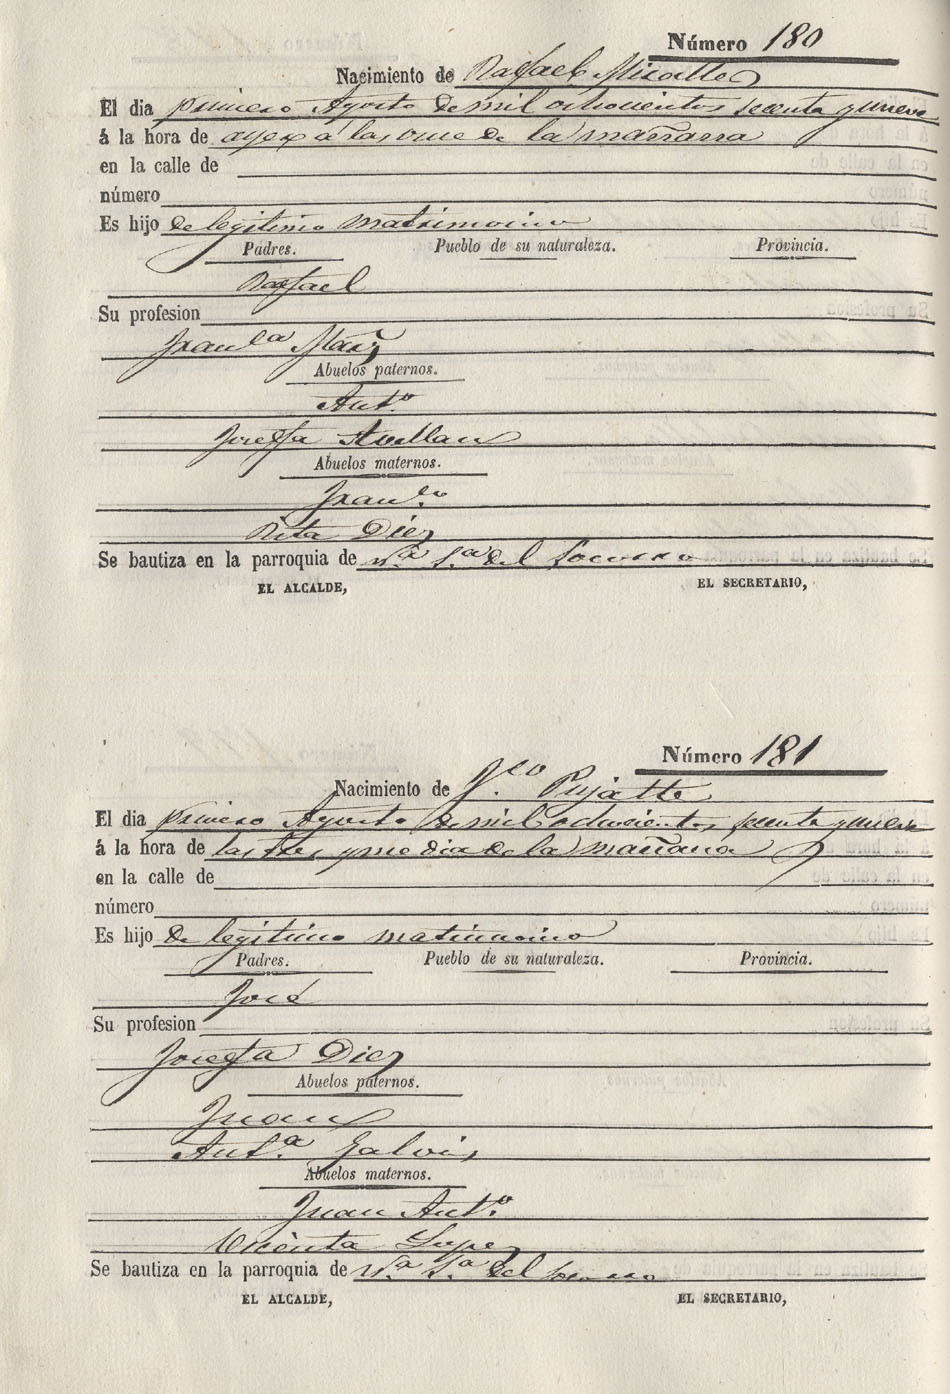 Número 180
Nacimiento de Rafael Miralles
El dia primero Agosto de mil ochocientos secenta y nueve
á la hora de ayer á las once de la mañana
en la calle de
número
Es hijo de legitimo matrimonio
Padres. Pueblo de su naturaleza. Provincia.
Rafael
Su profesion
Fran.ca Mañ
Abuelos paternos.
Ant.o
Josefa Avellan
Abuelos maternos.
Fran.co
Rita Diez
Se bautiza en la parroquia de N.a S.a del Socorro
EL ALCALDE, EL SECRETARIO,
Número 181
Nacimiento de F.co Pujalte
El dia primero Agosto de mil ochocientos secenta y nueve
á la hora de las tres y media de la mañana
en la calle de
número
Es hijo de legitimo matrimonio
Padres. Pueblo de su naturaleza. Provincia.
José
Su profesion
Josefa Diez
Abuelos paternos.
Juan
Ant.a Galvis
Abuelos maternos.
Juan Ant.o
Vicenta Lopez
Se bautiza en la parroquia de N.a S.a del Socorro
EL ALCALDE, EL SECRETARIO,